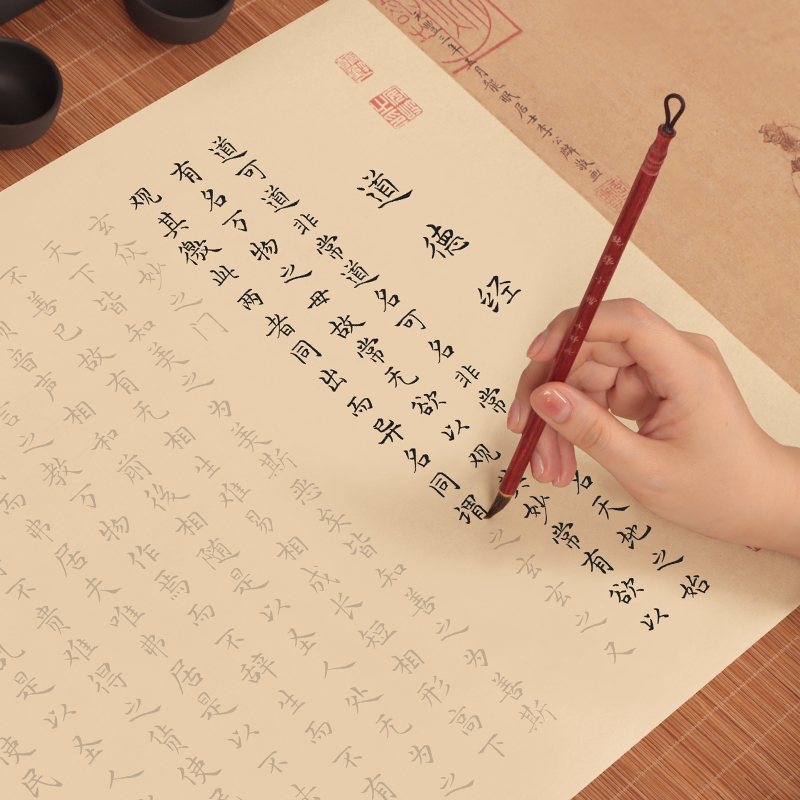 道德经
道可道非常道名可名非常名天地之始
有名万物之母故常无欲以观其妙常有欲以
观其徼此两者同出而异名同谓之玄玄之又
玄众妙之门
天下皆知美之为美斯恶矣皆知善之为善斯
不善已故有无相生难易相成长短相形高下
音声相和前後相随是以圣人处无为之
言之教万物作焉而不辞生而不有
而弗居夫唯弗居是以不
不贵难得之货使
乱是以圣人
使民
年八月龍眠居士李公麟敬画